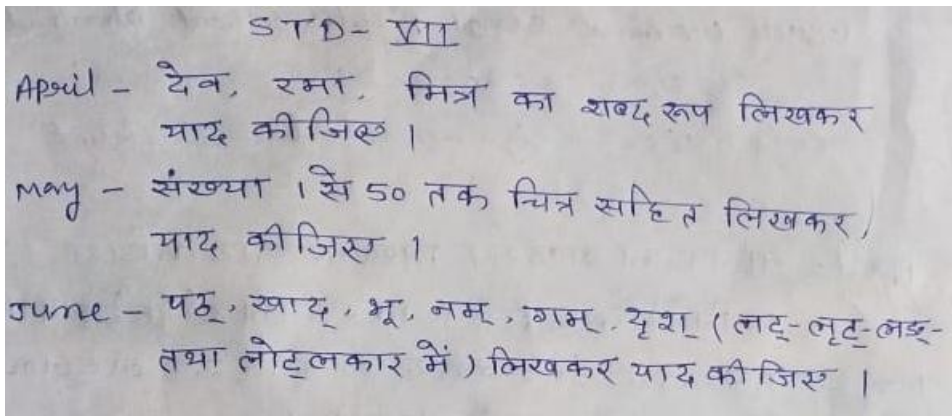 STD- VII
April - देव, रमा, मित्र का शब्द रूप लिखकर
याद कीजिए ।
May - संख्या 1 से 50 तक चित्र सहित लिखकर,
याद कीजिए ।
June - पठ्, खाद्, भू, नम्, गम्, दृश् (लट्-लृट्-लङ्-
तथा लोट्लकार में) लिखकर याद कीजिए ।